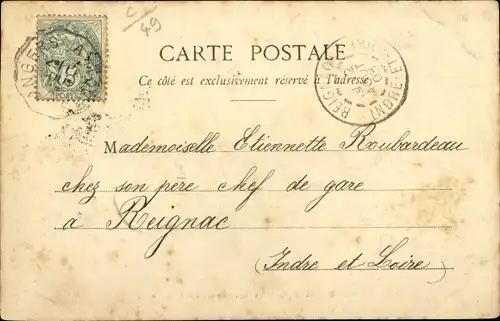 C/49
CARTE POSTALE
Ce côté est exclusivement réservé à l'adresse
Mademoiselle Etiennette Roubardeau
chez son père chef de gare
à Reignac
(Indre et Loire)